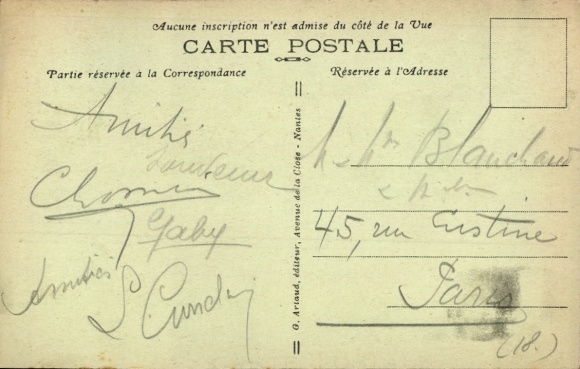 Aucune inscription n'est admise du côté de la Vue
CARTE POSTALE
Partie réservée à la Correspondance
Réservée à l'Adresse
Amitiés
Gaby
Amitiés
G. Artaud, éditeur, Avenue de la Close - Nantes
Blanchard
45, rue Custine
Paris
(18.)